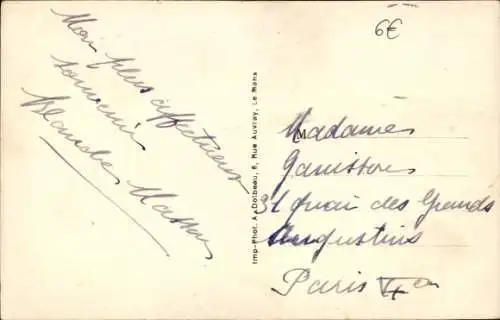 Mon plus affectueux
souvenir
Blanche Masson
Imp-Phot. A. Dolbeau, 8, Rue Auvray, Le Mans
6€
M
Madame
31 quai des Grands
Augustins
Paris